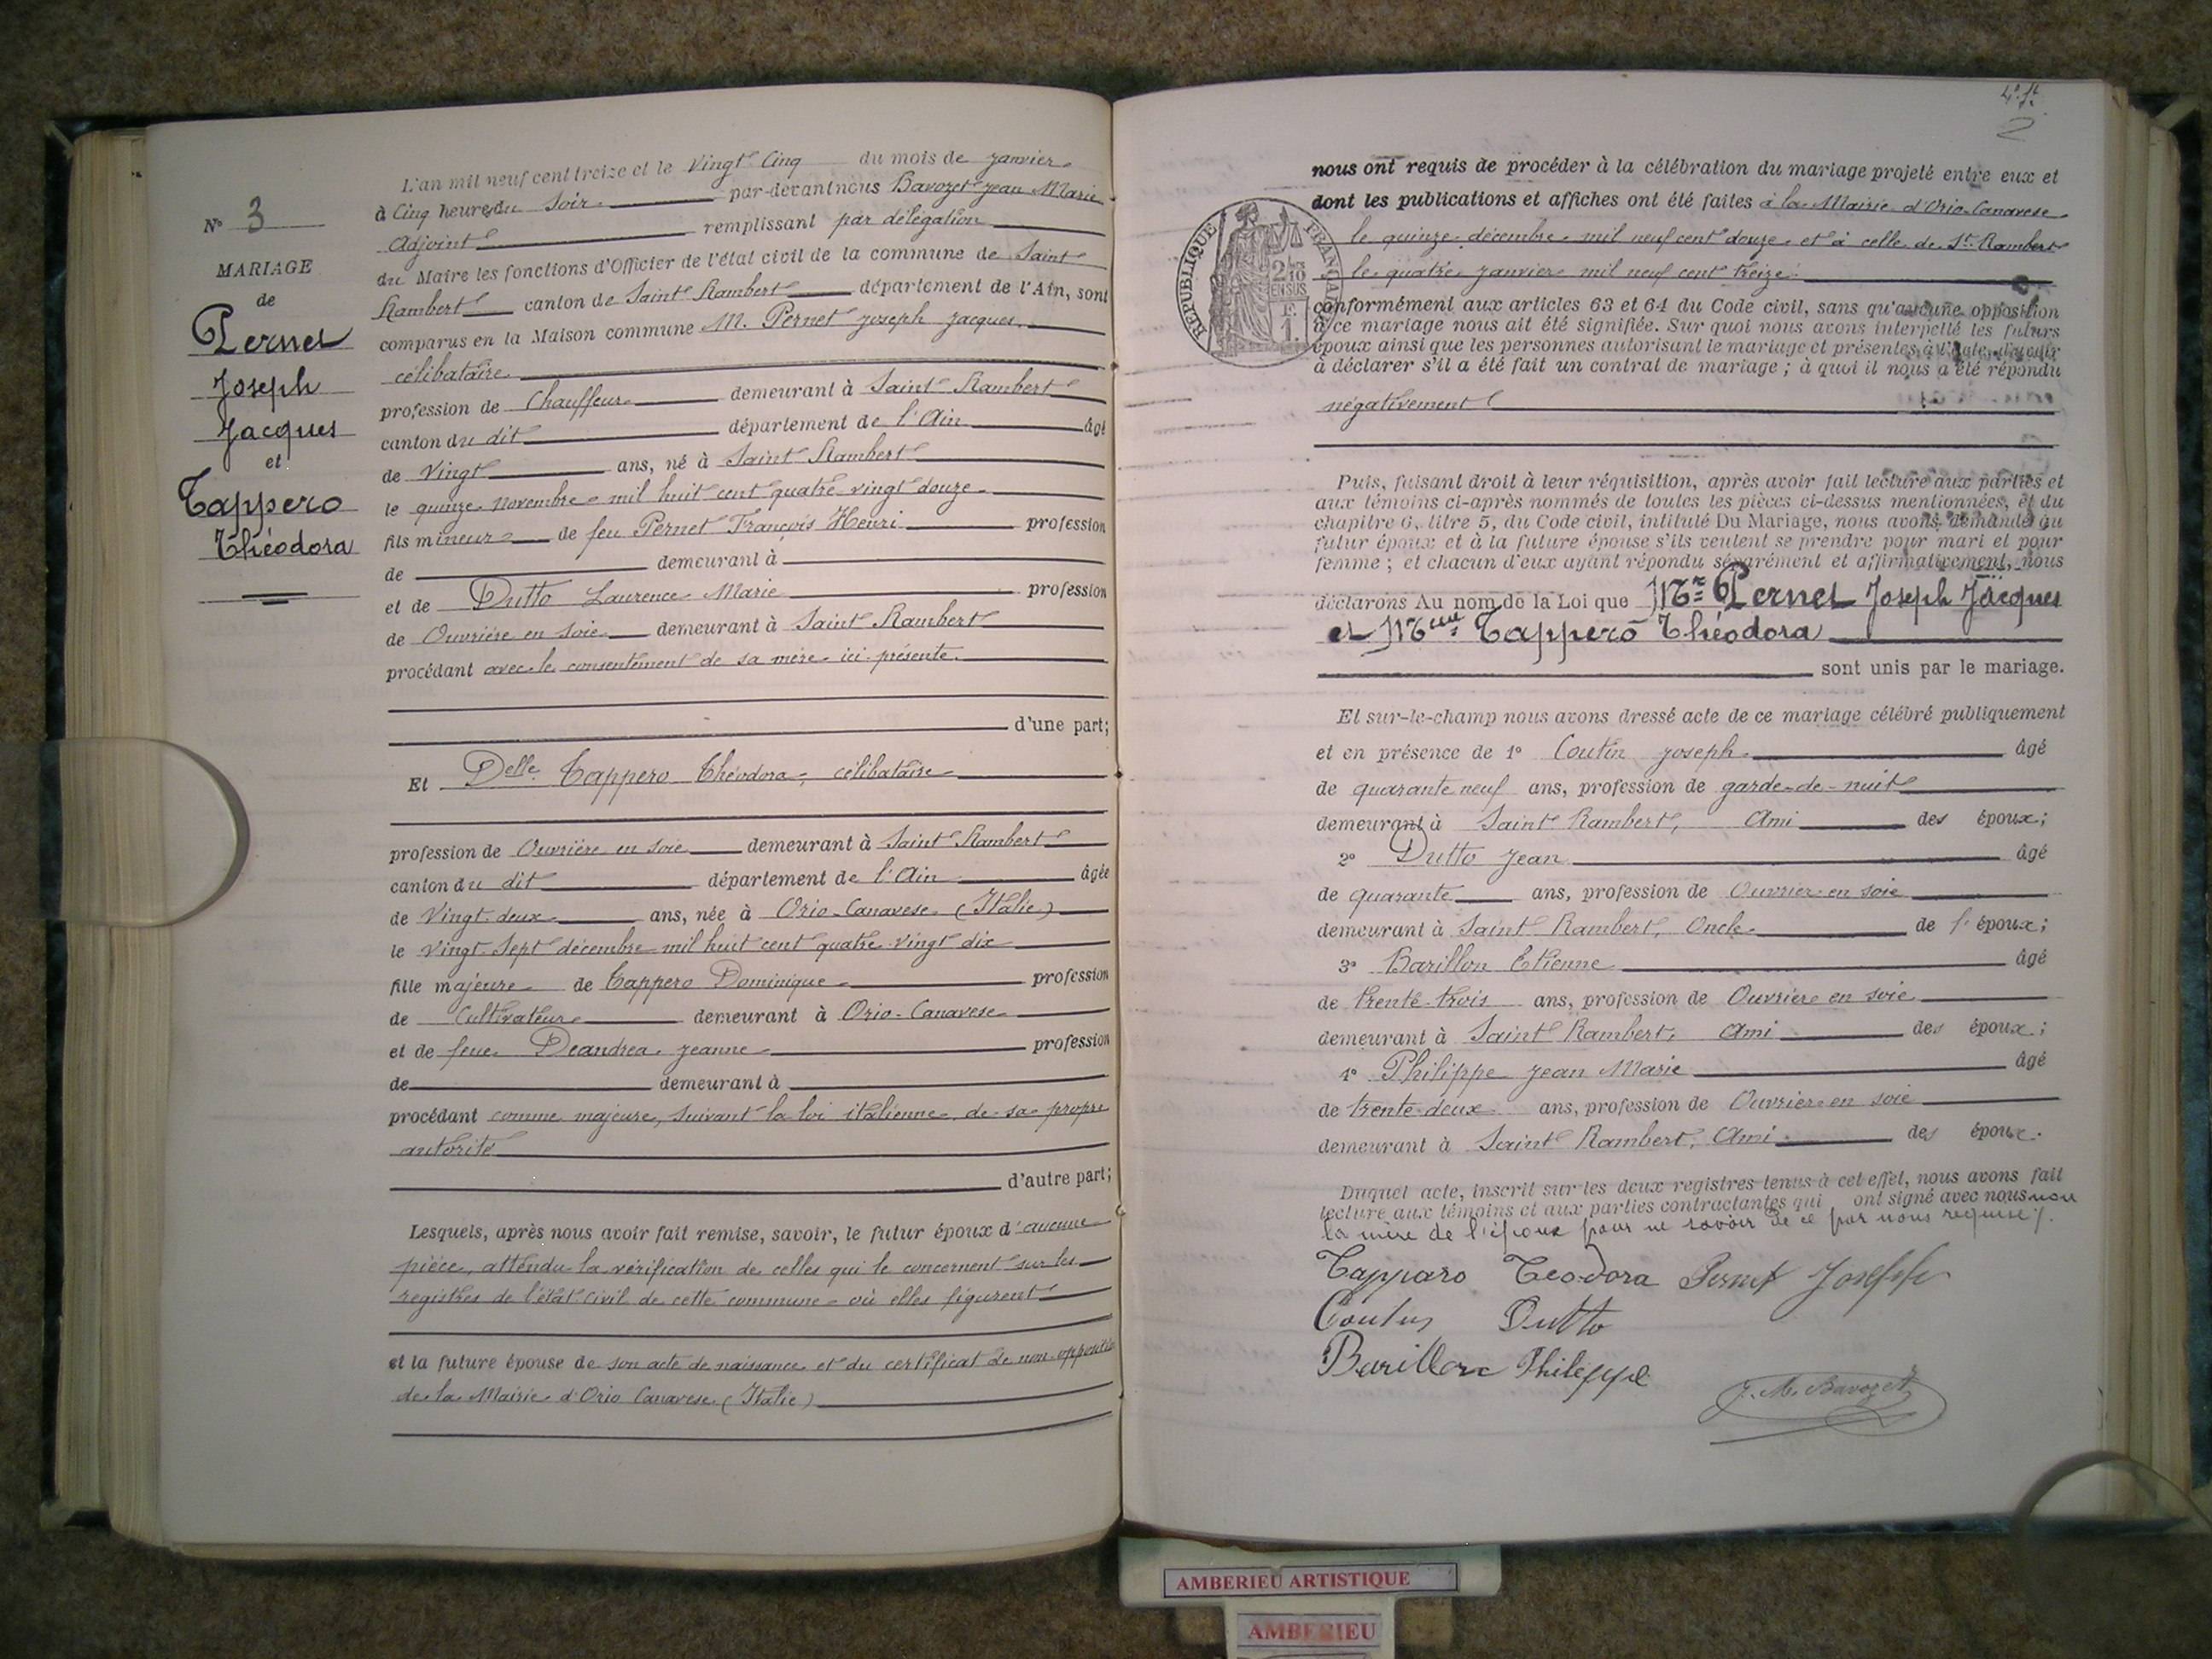 N° 3
MARIAGE
de
Pernet
Joseph
Jacques
et
Tappero
Théodora
L'an mil neuf cent treize et le Vingt Cinq du mois de janvier
à Cinq heures du Soir par-devant nous Bavozet Jean Marie
Adjoint remplissant par délégation
du Maire les fonctions d'Officier de l'état civil de la commune de Saint
Rambert canton de Saint Rambert département de l'Ain, sont
comparus en la Maison commune M. Pernet Joseph Jacques
célibataire
profession de Chauffeur demeurant à Saint Rambert
canton du dit département de l'Ain âgé
de Vingt ans, né à Saint Rambert
le quinze Novembre mil huit cent quatre vingt douze
fils mineur de feu Pernet François Henri profession
de demeurant à
et de Dutto Laurence Marie profession
de Ouvrière en soie demeurant à Saint Rambert
procédant avec le consentement de sa mère ici présente.
d'une part;
Et Delle Tappero Théodora, célibataire
profession de Ouvrière en soie demeurant à Saint Rambert
canton du dit département de l'Ain âgée
de Vingt deux ans, née à Orio-Canavese (Italie)
le vingt Sept décembre mil huit cent quatre vingt dix
fille majeure de Tappero Dominique profession
de Cultivateur demeurant à Orio-Canavese
et de feue Deandrea Jeanne profession
de demeurant à
procédant comme majeure, suivant la loi italienne, de sa propre
autorité
d'autre part;
Lesquels, après nous avoir fait remise, savoir, le futur époux d'aucune
pièce, attendu la vérification de celles qui le concernent sur les
registres de l'état civil de cette commune où elles figurent
et la future épouse de son acte de naissance et du certificat de non opposition
de la Mairie d'Orio Canavese (Italie)
2
nous ont requis de procéder à la célébration du mariage projeté entre eux et
dont les publications et affiches ont été faites à la Mairie d'Orio-Canavese
le quinze décembre mil neuf cent douze et à celle de St Rambert
le quatre janvier mil neuf cent treize
RÉPUBLIQUE FRANÇAISE
2/10 EN SUS
F. 1.
conformément aux articles 63 et 64 du Code civil, sans qu'aucune opposition
à ce mariage nous ait été signifiée. Sur quoi nous avons interpellé les futurs
époux ainsi que les personnes autorisant le mariage et présentes à l'acte, d'avoir
à déclarer s'il a été fait un contrat de mariage ; à quoi il nous a été répondu
négativement
Puis, faisant droit à leur réquisition, après avoir fait lecture aux parties et
aux témoins ci-après nommés de toutes les pièces ci-dessus mentionnées, et du
chapitre 6, titre 5, du Code civil, intitulé Du Mariage, nous avons demandé au
futur époux et à la future épouse s'ils veulent se prendre pour mari et pour
femme ; et chacun d'eux ayant répondu séparément et affirmativement, nous
déclarons Au nom de la Loi que Mr Pernet Joseph Jacques
et Mlle Tappero Théodora
sont unis par le mariage.
Et sur-le-champ nous avons dressé acte de ce mariage célébré publiquement
et en présence de 1° Coutin Joseph âgé
de quarante neuf ans, profession de garde-de-nuit
demeurant à Saint Rambert, Ami des époux;
2° Dutto Jean âgé
de quarante ans, profession de Ouvrier en soie
demeurant à Saint Rambert, Oncle de l'époux;
3° Barillon Etienne âgé
de trente-trois ans, profession de Ouvrier en soie
demeurant à Saint Rambert, Ami des époux;
4° Philippe Jean Marie âgé
de trente-deux ans, profession de Ouvrier en soie
demeurant à Saint Rambert, Ami des époux.
Duquel acte, inscrit sur les deux registres tenus à cet effet, nous avons fait
lecture aux témoins et aux parties contractantes qui ont signé avec nous non
la mère de l'époux pour ne savoir de ce par nous requise
Tapparo Teodora Pernet Joseph
Coutin Dutto
Barillon Philippe
J. M. Bavozet
AMBERIEU ARTISTIQUE
AMBERIEU